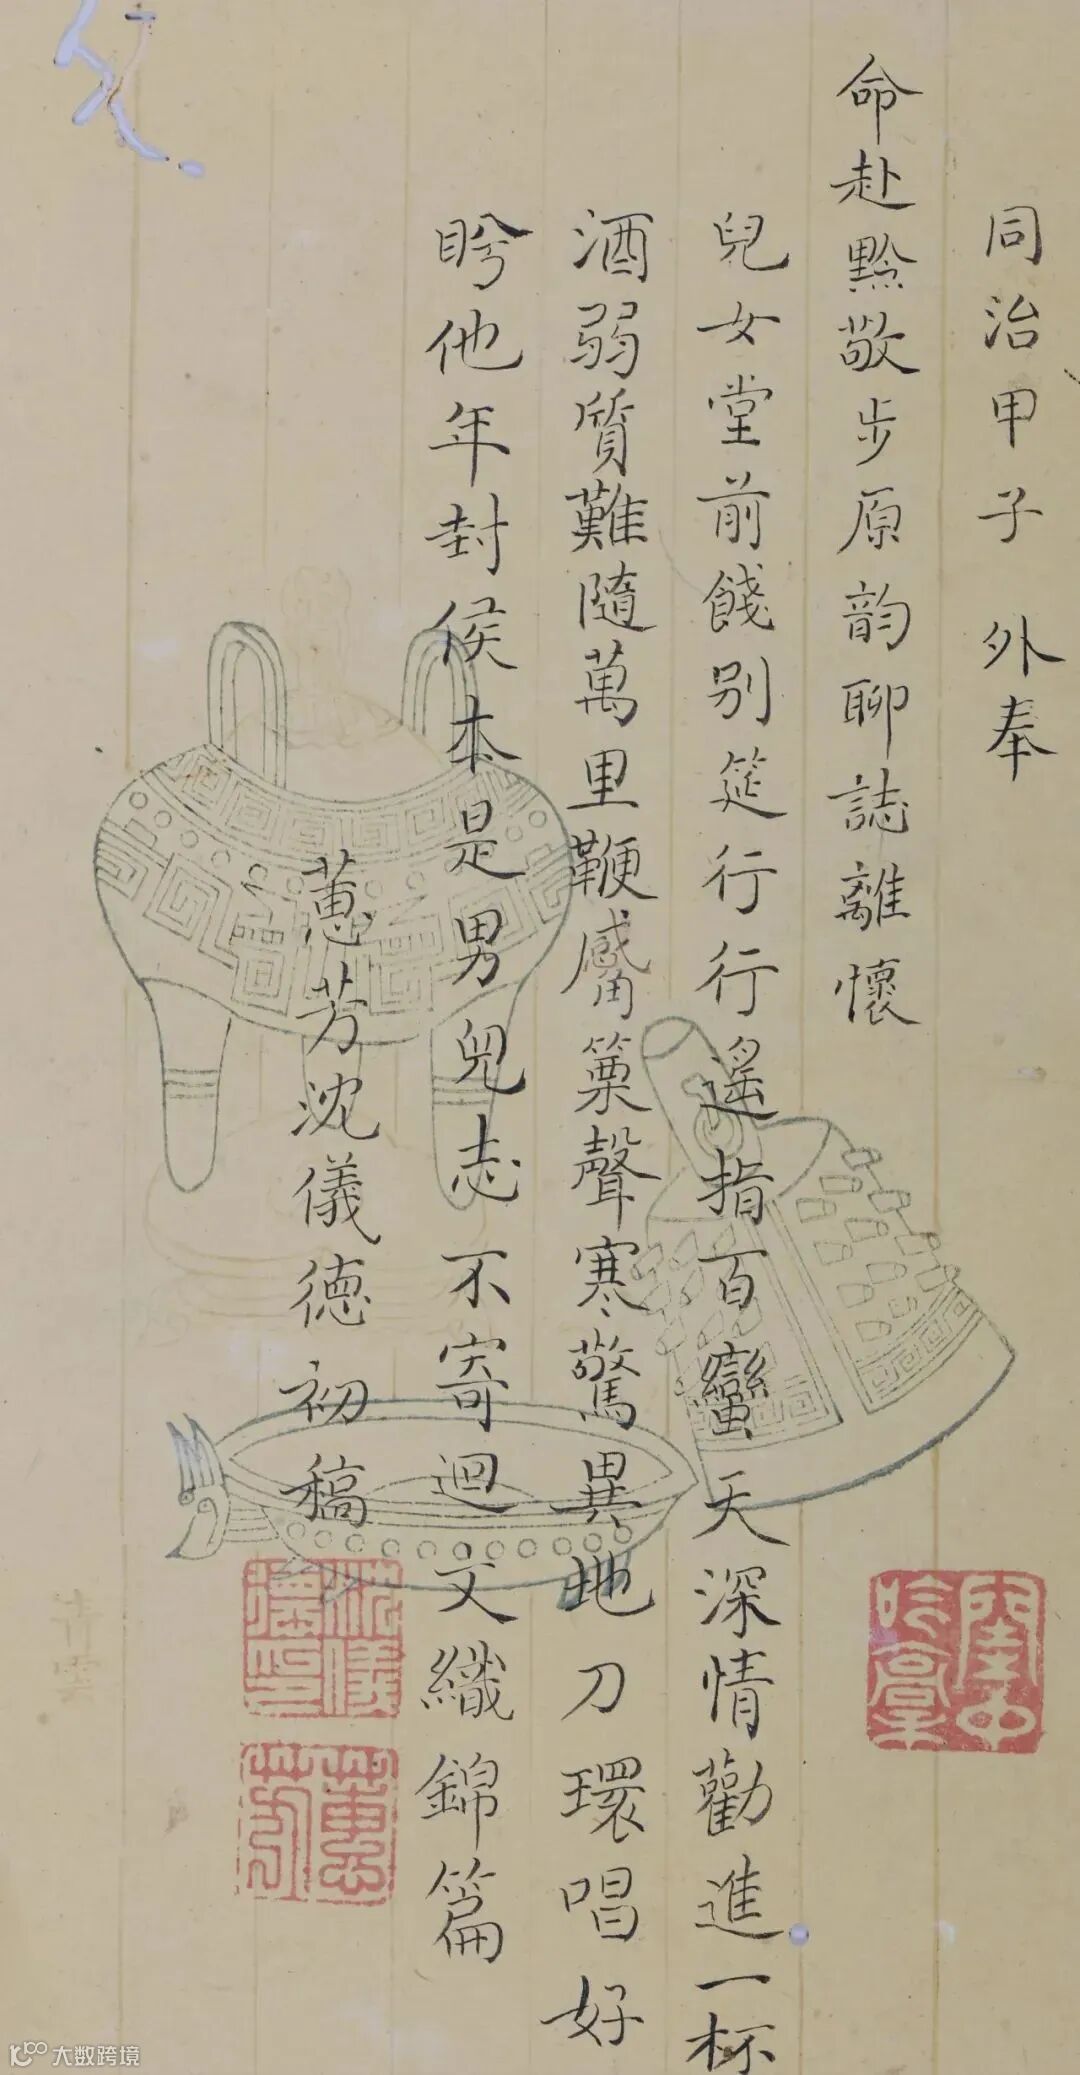 同治甲子 外奉
命赴黔敬步原韵聊誌離懷
兒女堂前餞别筵行行遥指百蠻天深情勸進一杯
酒弱質難隨萬里鞭觱篥聲寒驚異地刀環唱好
盻他年封侯本是男兒志不寄迴文織錦篇
蕙芳沈儀德初稿
沈儀德印
蕙芳
大数跨境